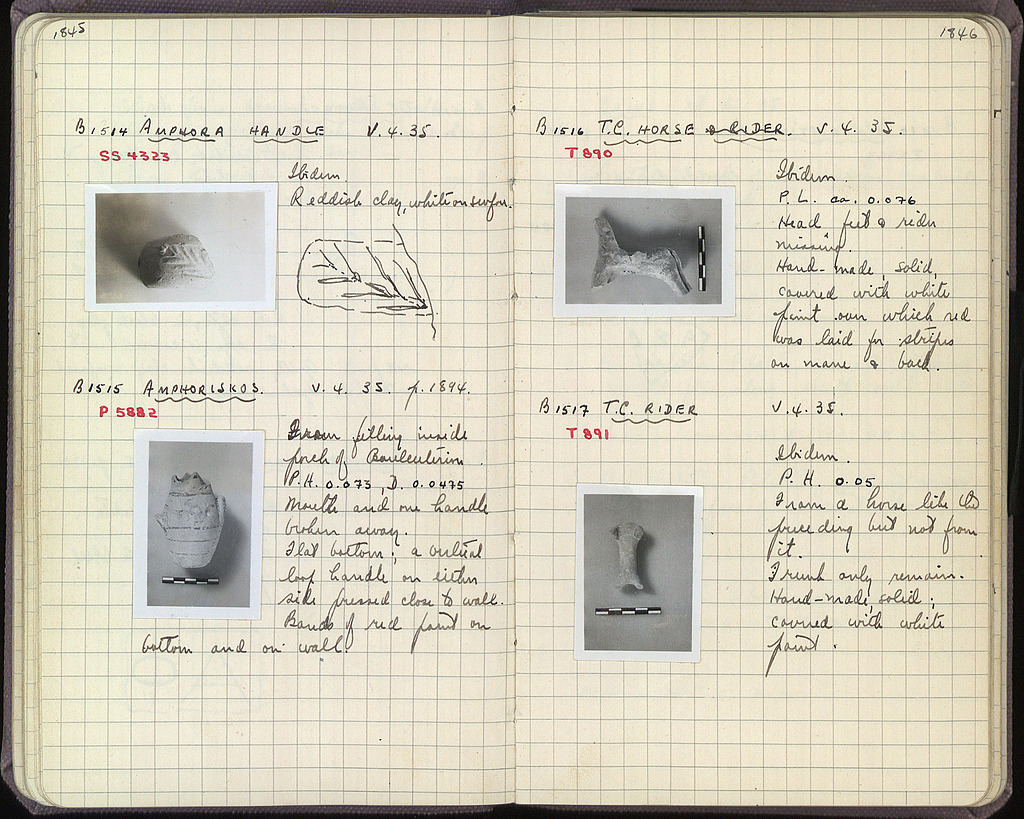 1845
B 1514 AMPHORA HANDLE V. 4. 35.
SS 4323
Ibidem.
Reddish clay, white on surface.
B 1515 AMPHORISKOS. V. 4. 35. p. 1894.
P 5882
From filling inside
porch of Bouleuterion.
P.H. 0.073, D. 0.0475
Mouth and one handle
broken away.
Flat bottom; a vertical
loop handle on either
side pressed close to wall.
Bands of red paint on
bottom and on wall.
1846
B 1516 T.C. HORSE & RIDER. V. 4. 35.
T 890
Ibidem.
P. L. ca. 0.076
Head feet & rider
missing.
Hand-made, solid,
covered with white
paint over which red
was laid for stripes
on mane & back.
B 1517 T.C. RIDER V. 4. 35.
T 891
Ibidem.
P. H. 0.05
From a horse like the
preceding but not from
it.
Trunk only remain.
Hand-made, solid;
covered with white
paint.